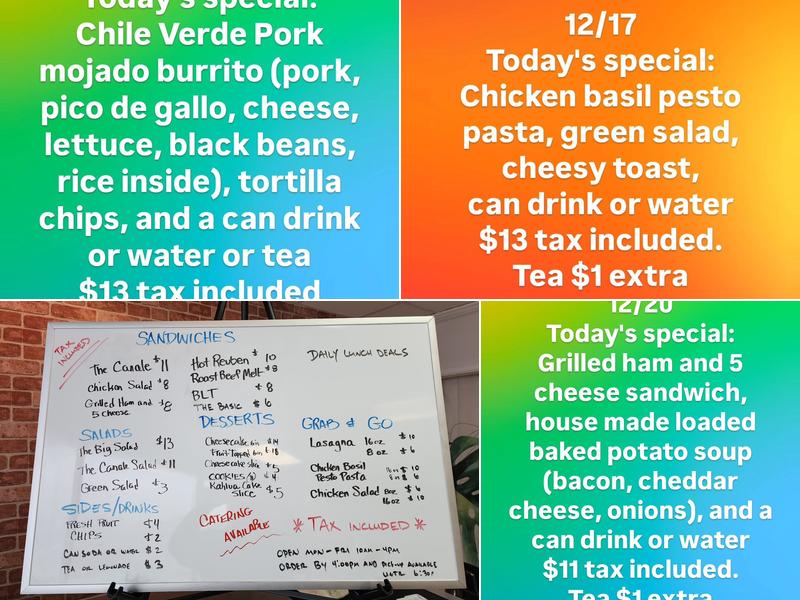 Today's special:
Chile Verde Pork
mojado burrito (pork,
pico de gallo, cheese,
lettuce, black beans,
rice inside), tortilla
chips, and a can drink
or water or tea
$13 tax included
12/17
Today's special:
Chicken basil pesto
pasta, green salad,
cheesy toast,
can drink or water
$13 tax included.
Tea $1 extra
TAX
INCLUDED
SANDWICHES
The Canale $11
Chicken Salad $8
Grilled Ham and $8
5 cheese
Hot Reuben $10
Roast Beef Melt $8
BLT $8
THE BASIC $6
DAILY LUNCH DEALS
SALADS
The Big Salad $13
The Canale Salad $11
Green Salad $3
DESSERTS
Cheesecake
Fruit Topped
Cheesecake slice $5
COOKIES $4
Kahlua Cake
slice $5
GRAB & GO
Lasagna 16oz $10
8oz $6
Chicken Basil 16oz $10
Pesto Pasta 8oz $6
Chicken Salad 8oz $6
16oz $10
SIDES/DRINKS
FRESH FRUIT $4
CHIPS $2
CAN SODA OR WATER $2
TEA OR LEMONADE $3
CATERING
AVAILABLE
* TAX INCLUDED *
OPEN MON-FRI 10AM-4PM
ORDER BY 4:00PM AND PICKUP AVAILABLE
UNTIL 6:30!
12/20
Today's special:
Grilled ham and 5
cheese sandwich,
house made loaded
baked potato soup
(bacon, cheddar
cheese, onions), and a
can drink or water
$11 tax included.
Tea $1 extra